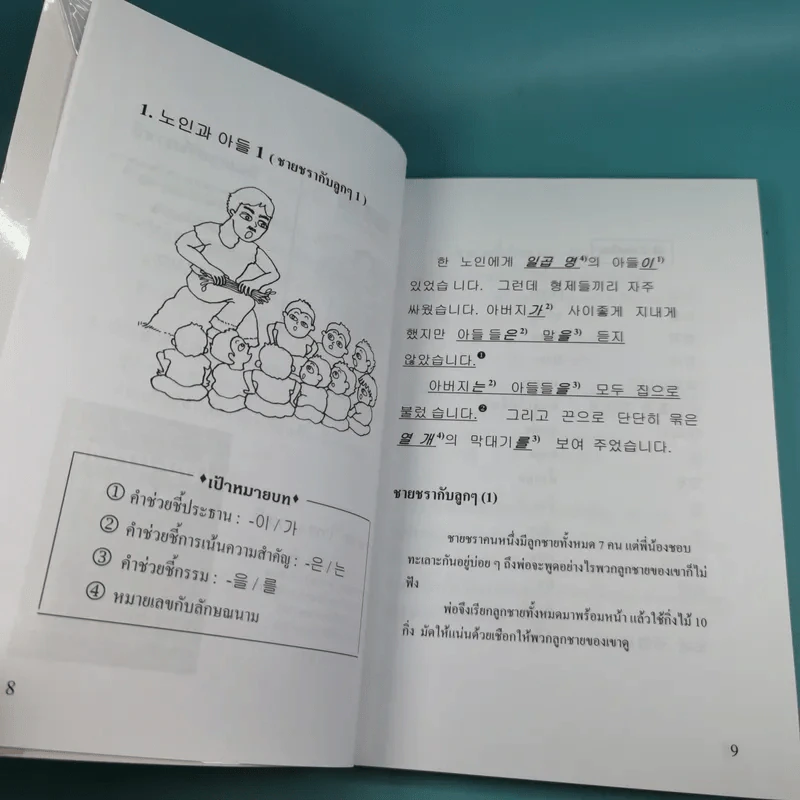 1. 노인과 아들 1 ( ชายชรากับลูกๆ 1 )
♦เป้าหมายบท♦
① คำช่วยชี้ประธาน : -이 / 가
② คำช่วยชี้การเน้นความสำคัญ : -은 / 는
③ คำช่วยชี้กรรม : -을 / 를
④ หมายเลขกับลักษณนาม
8
한 노인에게 일곱 명⁴⁾의 아들이¹⁾
있었습니다. 그런데 형제들끼리 자주
싸웠습니다. 아버지가²⁾ 사이좋게 지내게
했지만 아들들은²⁾ 말을³⁾ 듣지
않았습니다.❶
아버지는²⁾ 아들들을³⁾ 모두 집으로
불렀습니다.❷ 그리고 끈으로 단단히 묶은
열 개⁴⁾의 막대기를³⁾ 보여 주었습니다.
ชายชรากับลูกๆ (1)
ชายชราคนหนึ่งมีลูกชายทั้งหมด 7 คน แต่พี่น้องชอบ
ทะเลาะกันอยู่บ่อย ๆ ถึงพ่อจะพูดอย่างไรพวกลูกชายของเขาก็ไม่
ฟัง
พ่อจึงเรียกลูกชายทั้งหมดมาพร้อมหน้า แล้วใช้กิ่งไม้ 10
กิ่ง มัดให้แน่นด้วยเชือกให้พวกลูกชายของเขาดู
9